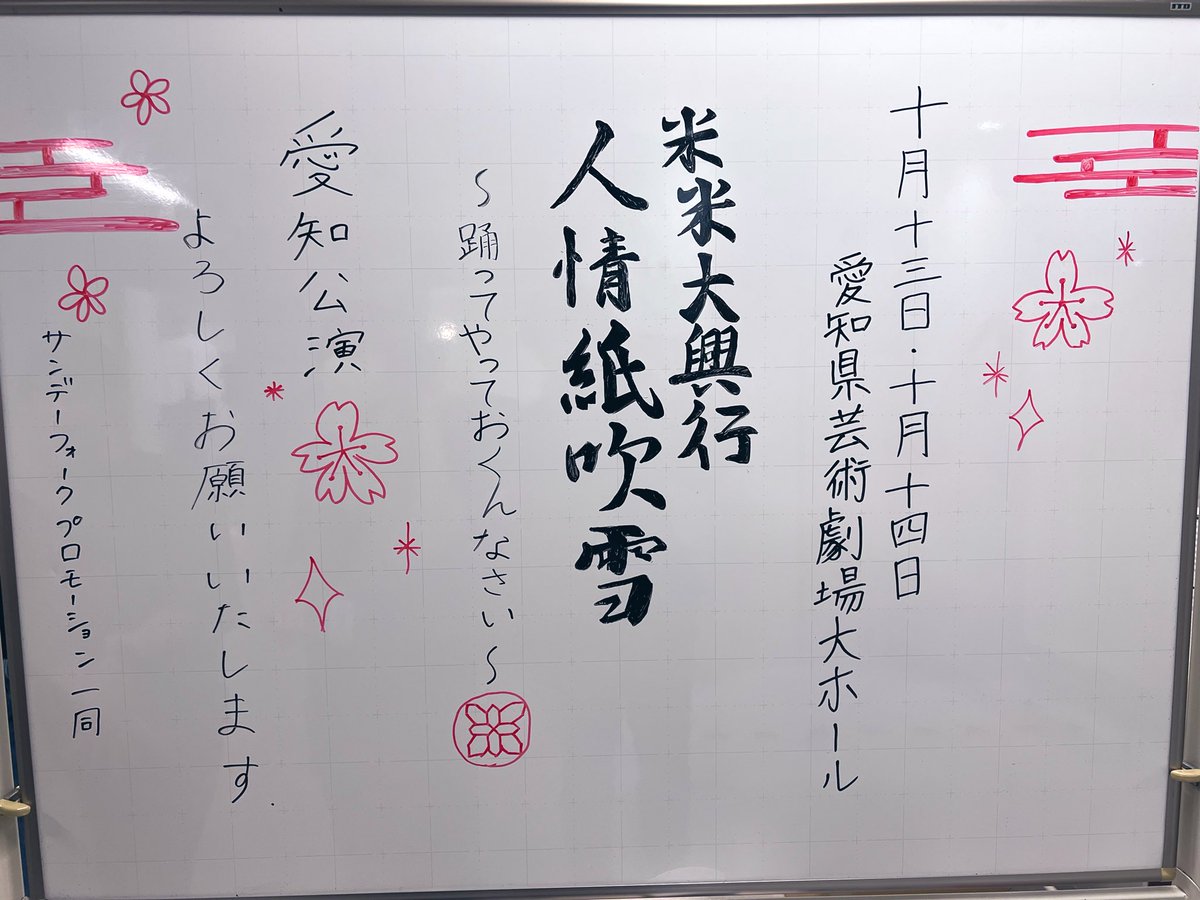 十月十三日・十月十四日
愛知県芸術劇場大ホール
米米大興行
人情紙吹雪
〜踊ってやっておくんなさい〜
愛知公演
よろしくお願いいたします.
サンデーフォークプロモーション一同